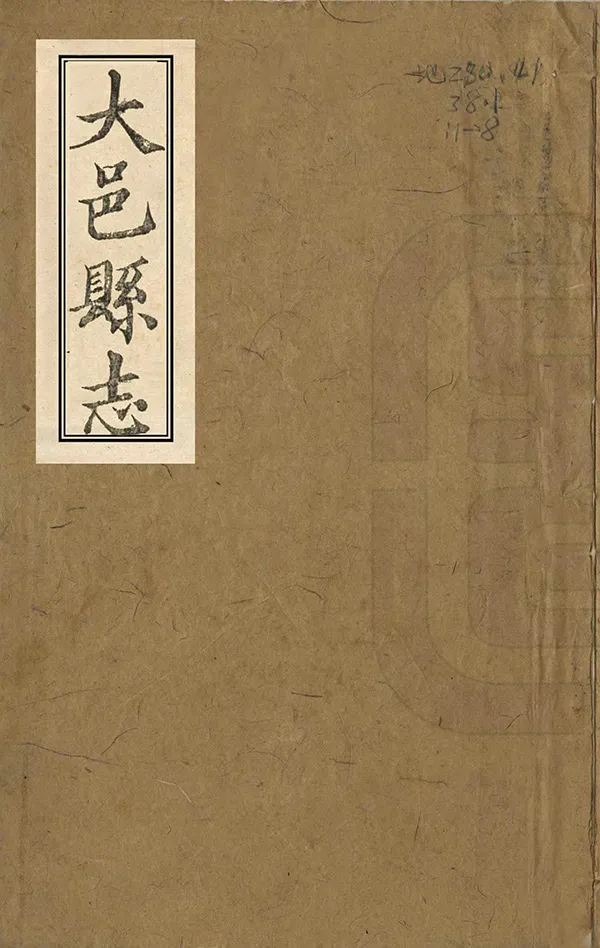 大邑縣志
地280.41
38.1
11-8